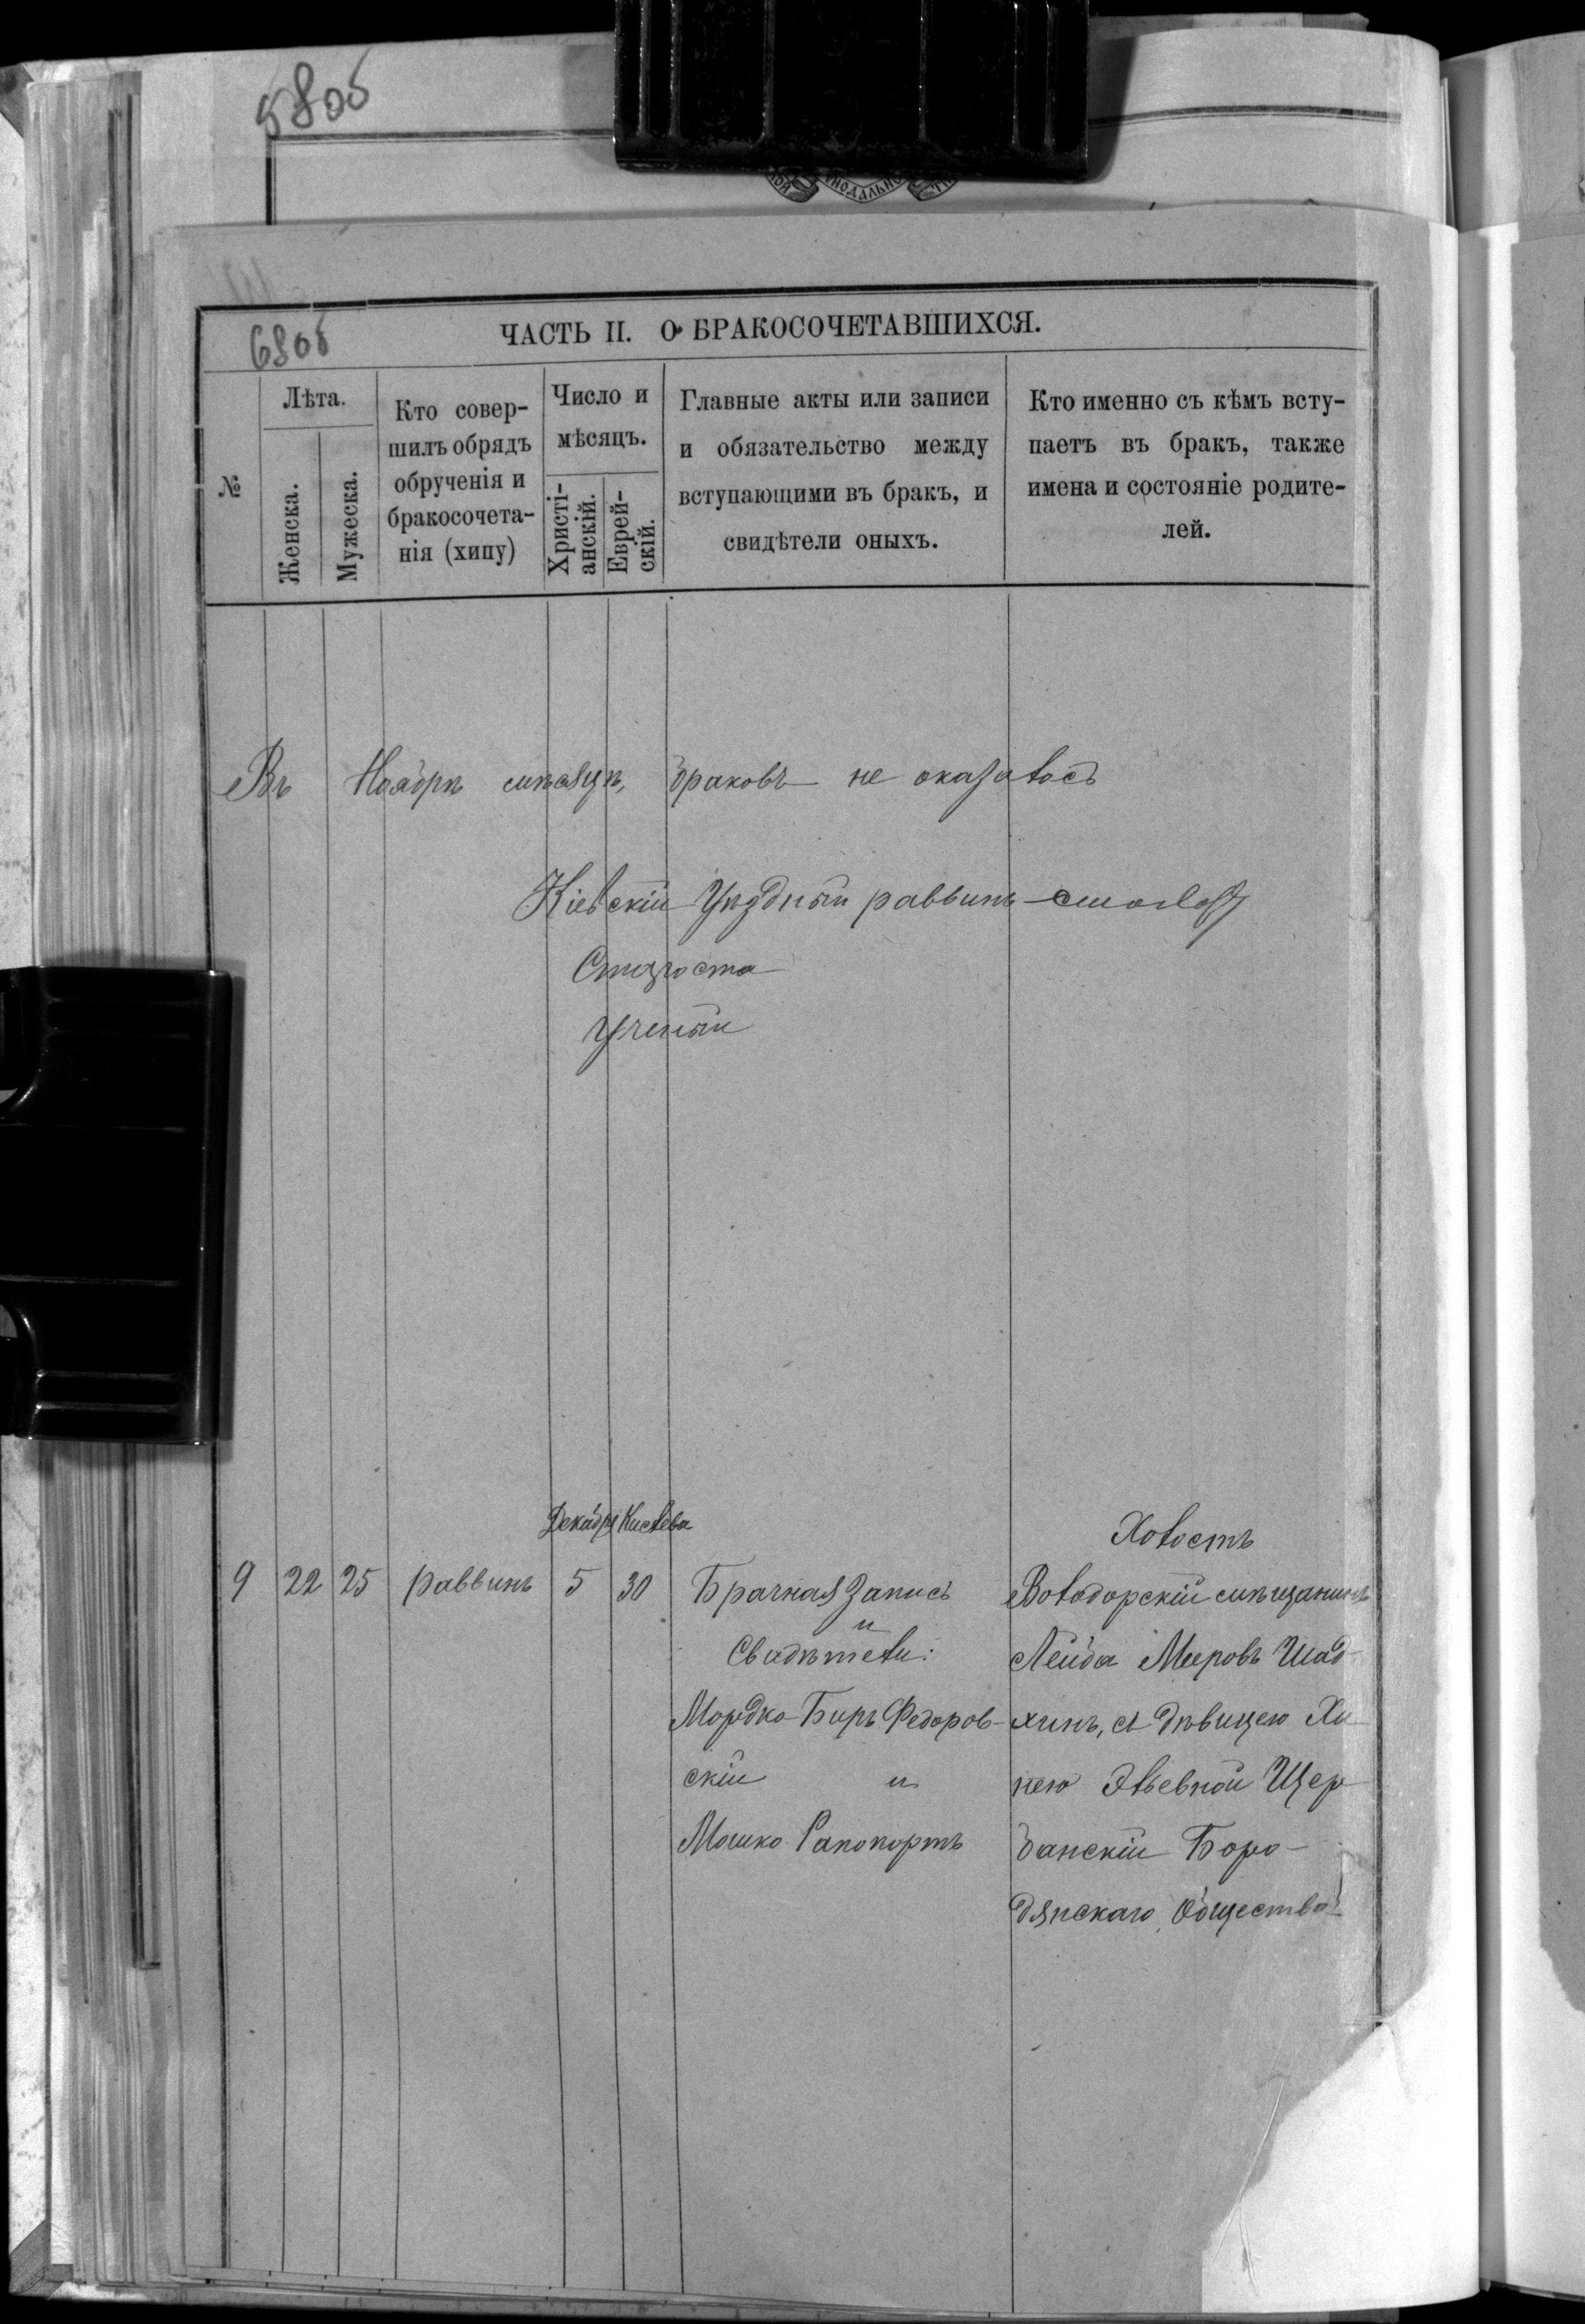 580б
680б
ЧАСТЬ II. О БРАКОСОЧЕТАВШИХСЯ.
№
Лѣта.
Женска.
Мужеска.
Кто совер-
шилъ обрядъ
обрученія и
бракосочета-
нія (хипу)
Число и
мѣсяцъ.
Христі-
анскій.
Еврей-
скій.
Главные акты или записи
и обязательство между
вступающими въ бракъ, и
свидѣтели оныхъ.
Кто именно съ кѣмъ всту-
паетъ въ бракъ, также
имена и состояніе родите-
лей.
Въ Ноябрѣ мѣсяцѣ, браковъ не оказалось
Кіевскій Уѣздный раввинъ
Староста
Ученый
Декабря Кислева
9 22 25 раввинъ 5 30
Брачная Запись
и
Свидѣтели:
Мордко Биръ Федоров-
скій и
Мошко Рапопортъ
Холостъ
Володорскій мѣщанинъ
Лейба Мееровъ Шад-
хинъ, съ дѣвицею Хи
нею Эльевной Щер
банскій Боро-
дянскаго Общества